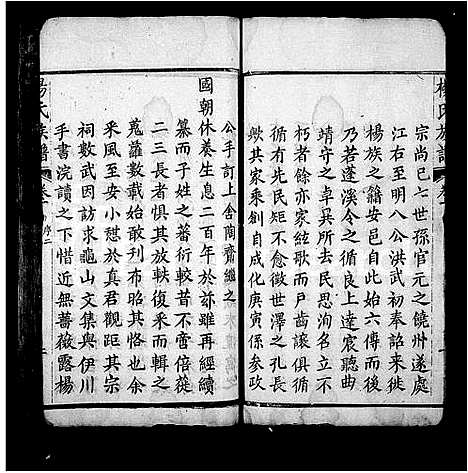 楊氏族譜
宗尚已七世孫官元之饒州遂處
江右至明八公洪武初奉詔来徙
楊族之籍安邑自此始六傅而後
乃若蓬溪今之循良上達宸聽曲
靖守之卓異所去民思洵名立不
朽者餘亦家絃歌而戶齒讓俱循
循有先民矩不愈徵世澤之孔長
歟其家乘創自成化庚寅係参政
公手訂上舍尚齋繼之
國朝休養生息二百年於玆雖再經續
纂而子姓之蕃衍較昔不啻倍蓰
二三長者惧其放軼復釆而輯之
蒐羅數載始敢刋布昭其恪也余
釆風至安小憇於真君觀距其宗
祠數武因訪求龜山文集與伊川
手書浣讀之下惜近無薔薇露楊
楊氏族譜
卷
序二